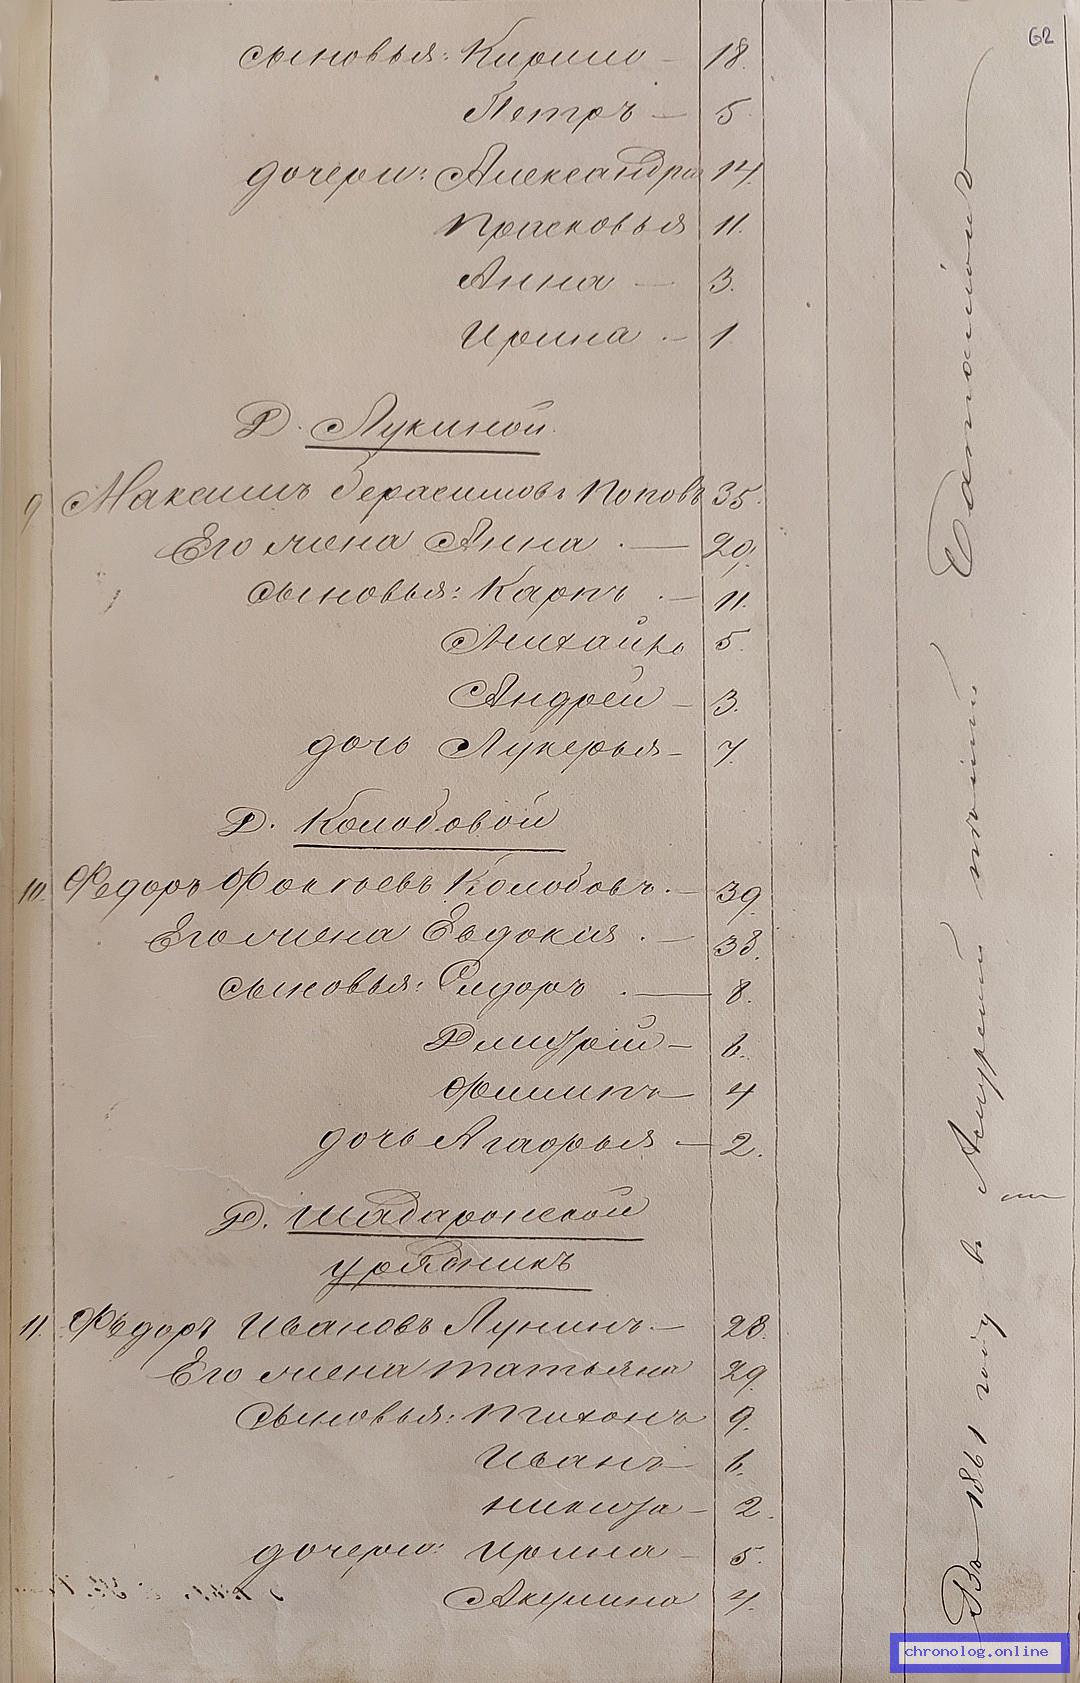 62
сыновья: Кирило — 18.
Петръ — 5.
дочери: Александра 14.
Прасковья 11.
Анна — 3.
Ирина — 1
Д. Лукиной.
9 Максимъ Герасимовъ Поповъ 35.
Его жена Анна — 29.
сыновья: Карпъ — 11.
Михайло 5.
Андрей — 3.
дочь Лукерья — 7.
Д. Колобовой
10. Федоръ Фокѣевъ Колобовъ. — 39.
Его жена Евдокия — 38.
сыновья: Сидоръ — 8.
Дмитрій — 6.
Филипъ 4
дочь Агафья — 2.
Д. Шадаронской
урядникъ
11. Федоръ Ивановъ Лунинъ — 28.
Его жена Татьяна 29.
Сыновья: Тихонъ 9.
Иванъ 6.
Никита — 2.
дочери: Ирина — 5.
Акулина 4.
Въ 1861 году въ Амурскій пѣшій баталіонъ
chronolog.online